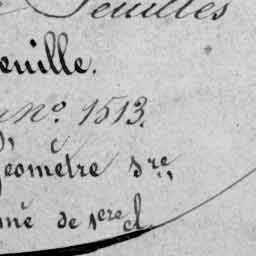 Feuilles
euille.
no. 1513.
géomètre
de 1ere cl